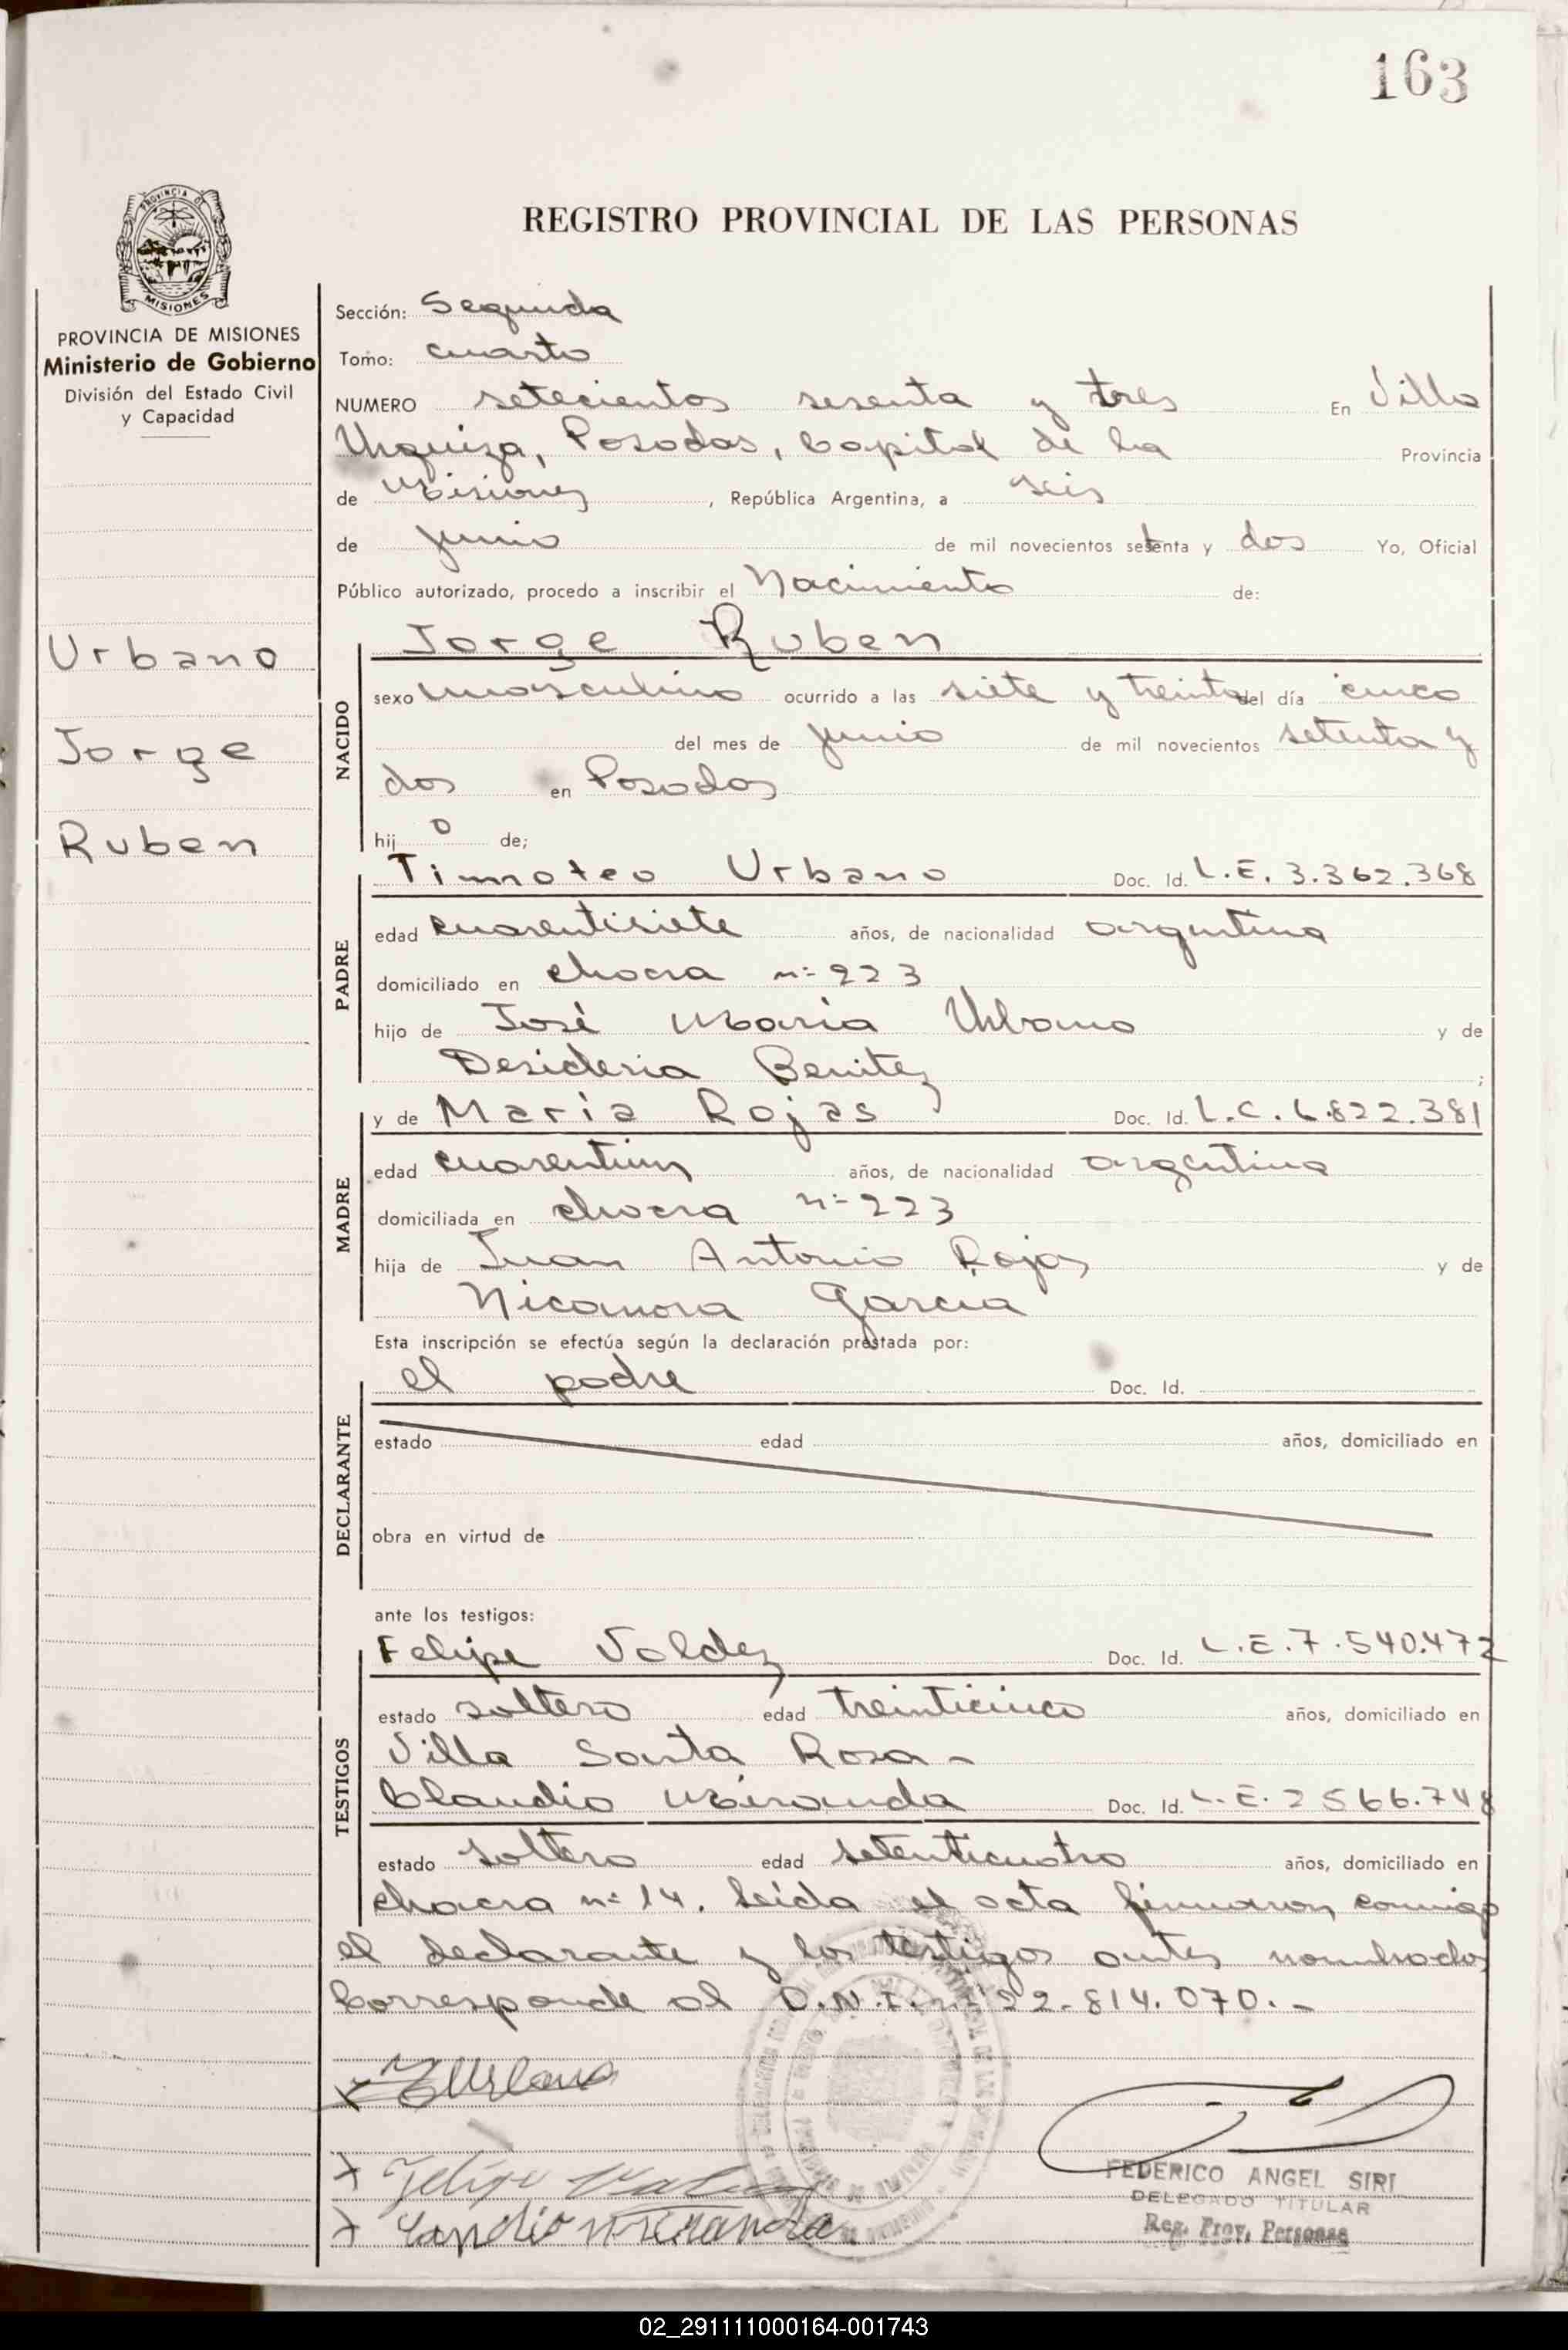 163
REGISTRO PROVINCIAL DE LAS PERSONAS
PROVINCIA DE MISIONES
Ministerio de Gobierno
División del Estado Civil
y Capacidad
Urbano
Jorge
Ruben
Sección: Segunda
Tomo: cuarto
NUMERO setecientos sesenta y tres En Villa
Urquiza, Posadas, Capital de la Provincia
de Misiones, República Argentina, a seis
de junio de mil novecientos setenta y dos Yo, Oficial
Público autorizado, procedo a inscribir el Nacimiento de:
Jorge Ruben
NACIDO
sexo masculino ocurrido a las siete y treinta del día cinco
del mes de junio de mil novecientos setenta y
dos en Posadas
hijo de;
Timoteo Urbano Doc. Id. L.E. 3.362.368
PADRE
edad cuarentisiete años, de nacionalidad argentina
domiciliado en chacra nº 223
hijo de José Maria Urbano y de
Desideria Benitez;
y de María Rojas Doc. Id. L.C. 6.822.381
MADRE
edad cuarentiun años, de nacionalidad argentina
domiciliada en chacra nº 223
hija de Juan Antonio Rojas y de
Nicanora Garcia
Esta inscripción se efectúa según la declaración prestada por:
el padre Doc. Id.
DECLARANTE
estado edad años, domiciliado en
obra en virtud de
ante los testigos:
Felipe Valdez Doc. Id. L.E. 7.540.472
TESTIGOS
estado soltero edad treinticinco años, domiciliado en
Villa Santa Rosa-
Claudio Miranda Doc. Id. L.E. 2566.748
estado soltero edad setenticuatro años, domiciliado en
chacra nº 14. Leída el acta firmaron conmigo
el declarante y los testigos antes nombrados
Corresponde al D.N.I. nº 22-814.070.-
T Urbano
Felipe Valdez
Claudio Miranda
FEDERICO ANGEL SIRI
DELEGADO TITULAR
Reg. Prov. Personas
02_291111000164-001743